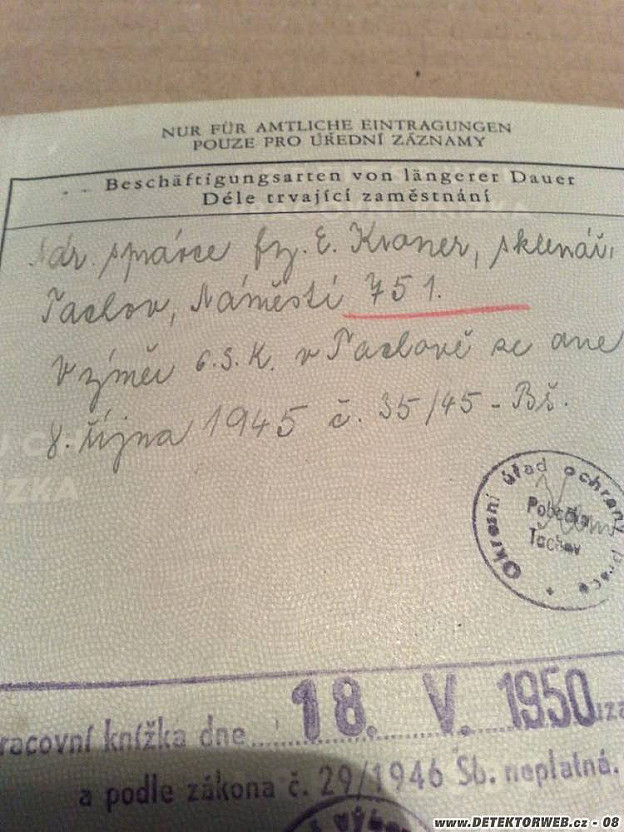 NUR FÜR AMTLICHE EINTRAGUNGEN
POUZE PRO ÚŘEDNÍ ZÁZNAMY
Beschäftigungsarten von längerer Dauer
Déle trvající zaměstnání
Nár. správce fy. E. Kraner, sklenář,
Tachov, Náměstí 751.
Výměr O.S.K. v Tachově ze dne
8. října 1945 č. 35/45 - Bš.
Okresní úřad ochrany práce
Pobočka
Tachov
racovní knížka dne 18. V. 1950
a podle zákona č. 29/1946 Sb. neplatná.
www.DETEKTORWEB.cz - 08